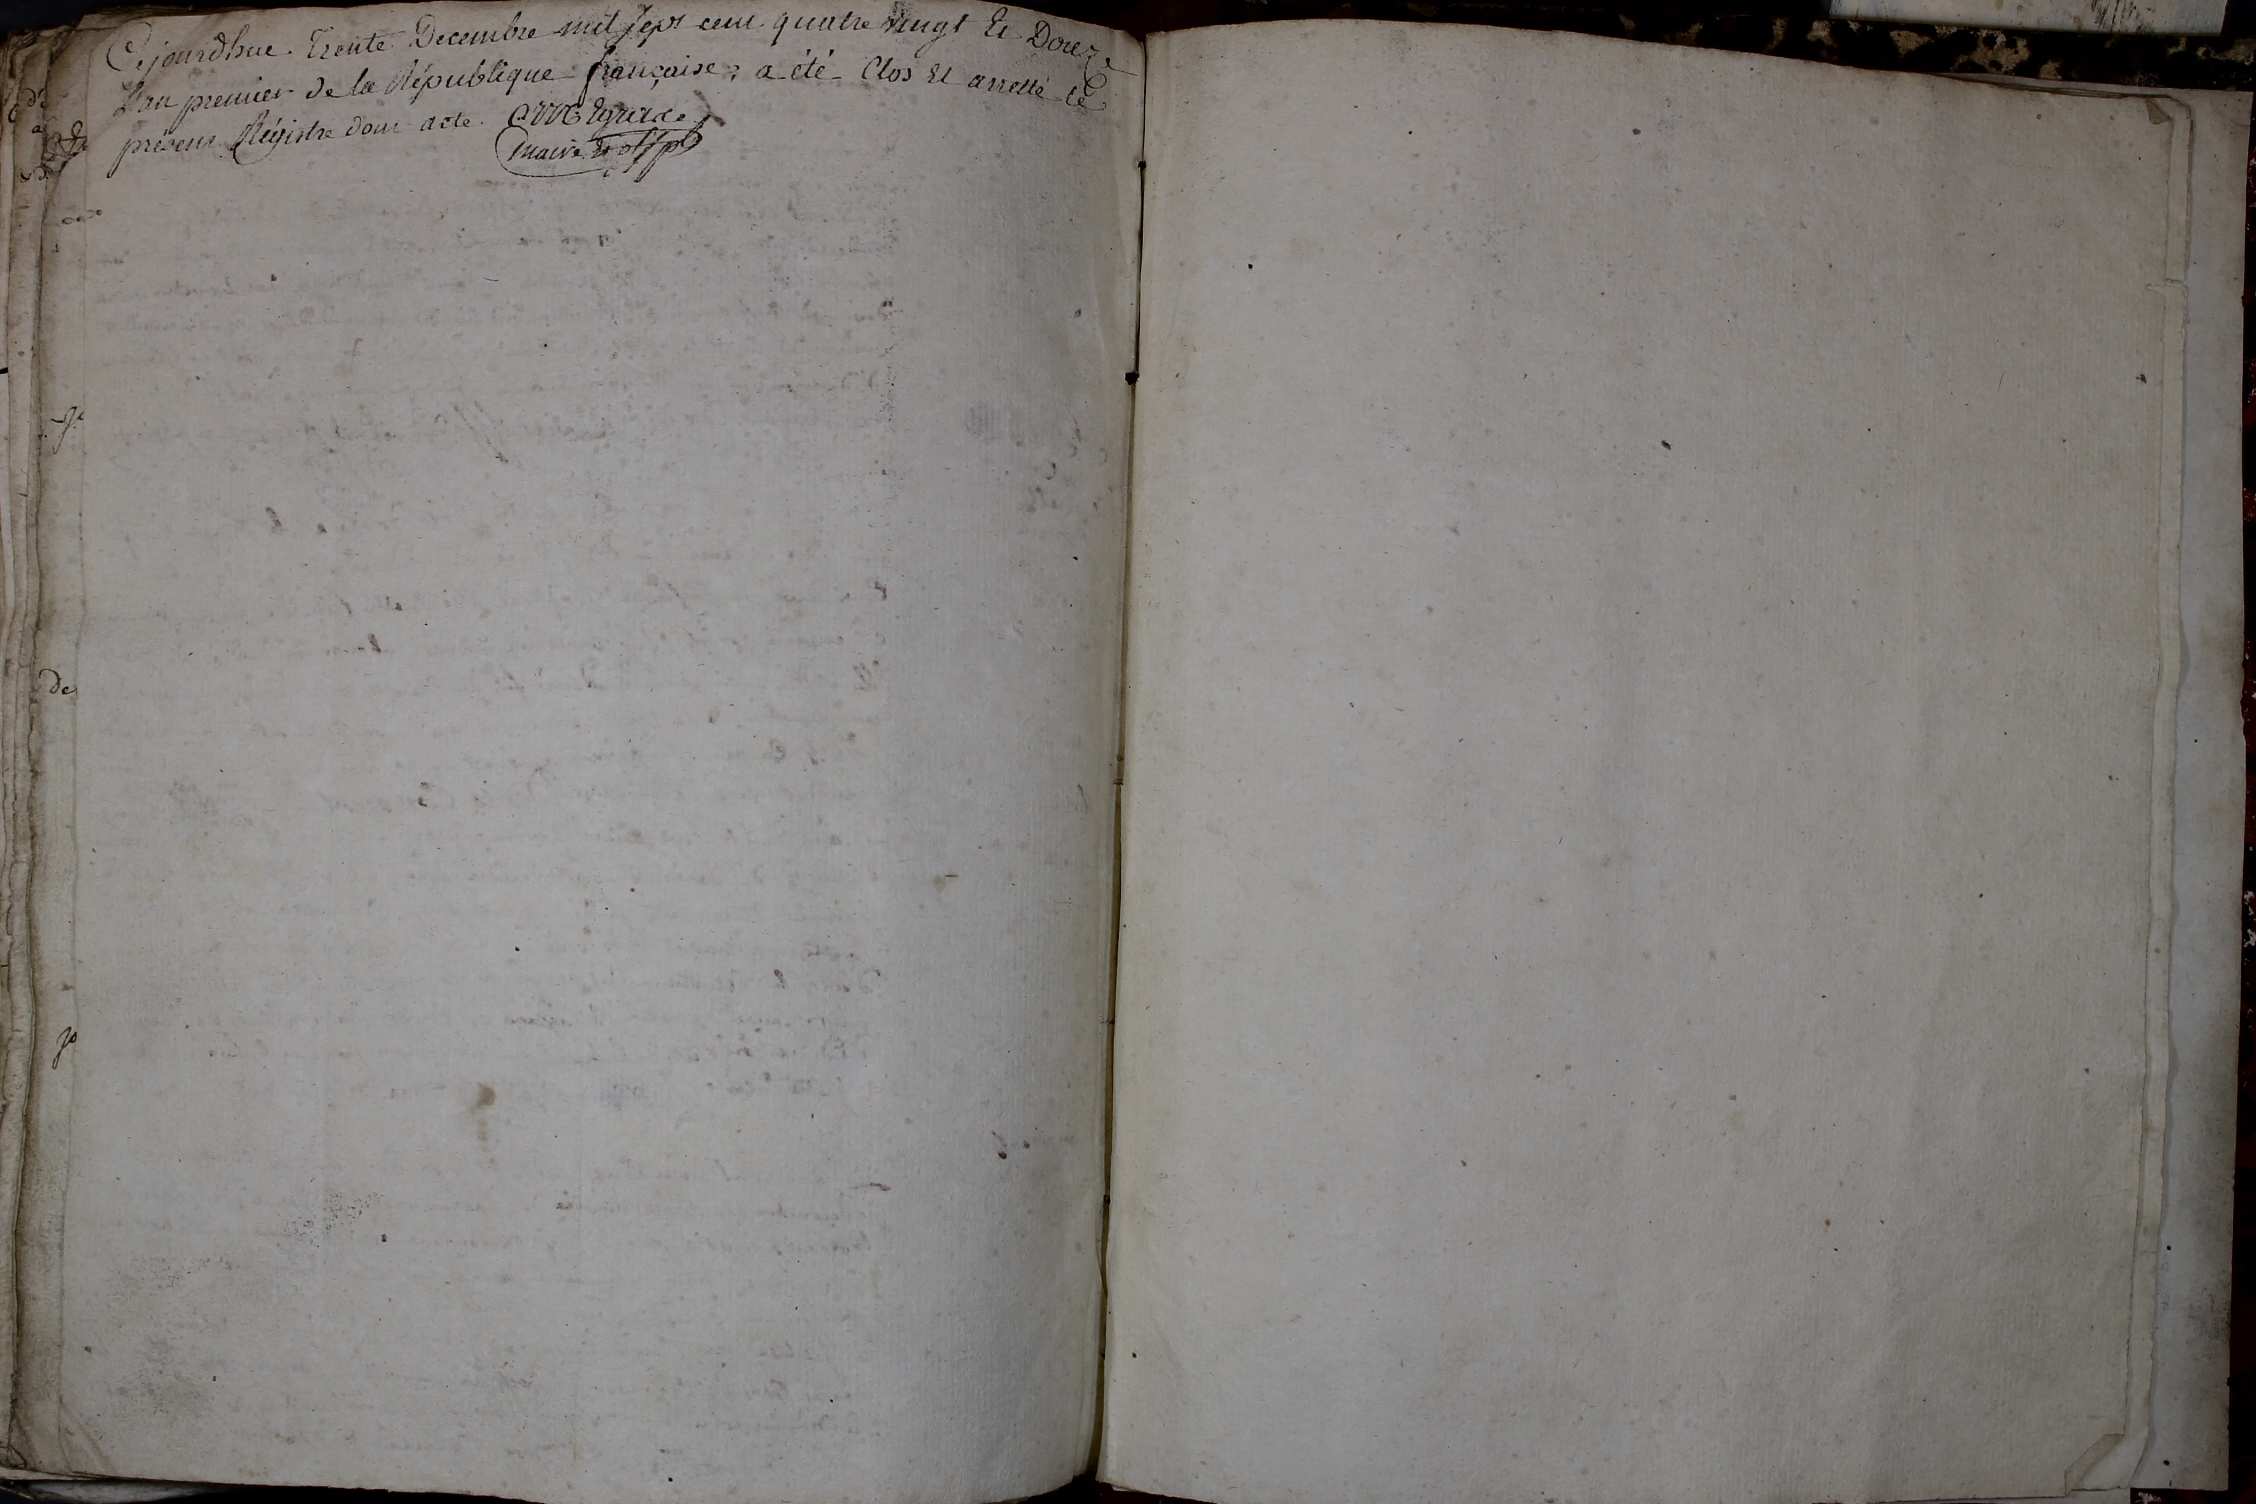 Cejourdhuc Trente Decembre mil sept cent quatre vingt et Douze
L'an premier de la République française, a été Clos et arretté ce
présent Régistre dont acte.
maire et off p